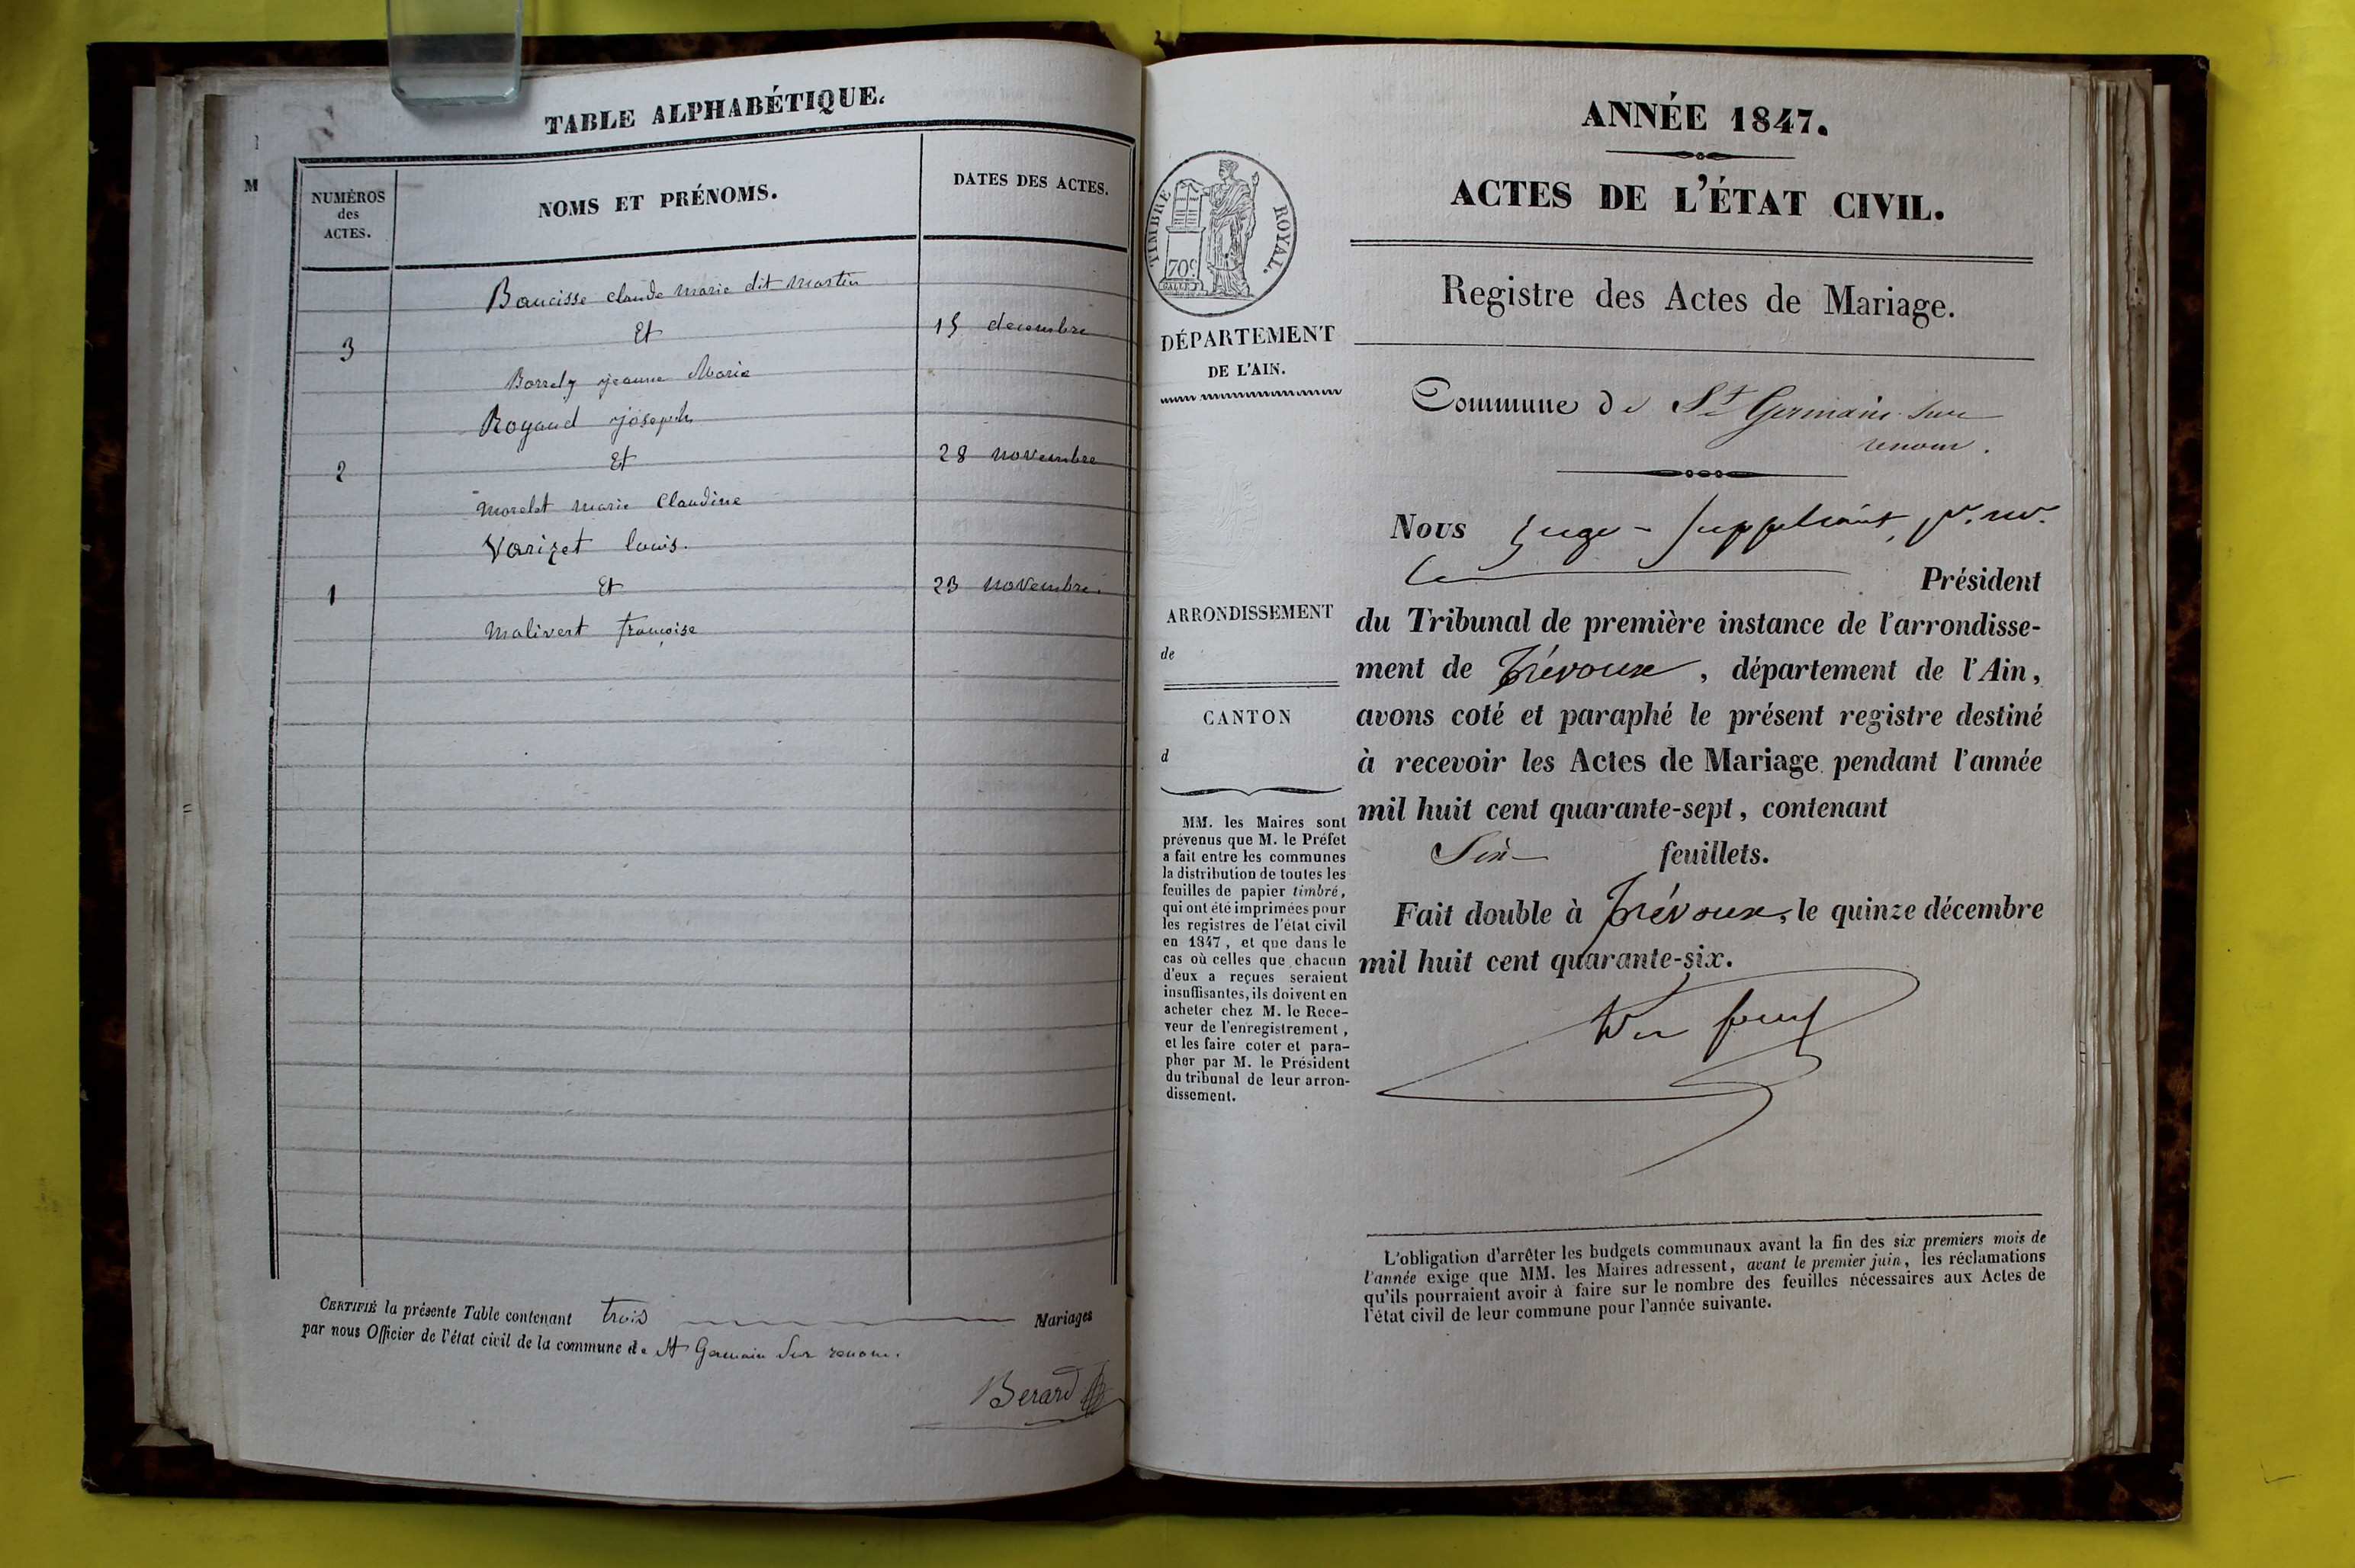 TABLE ALPHABÉTIQUE.
M
NUMÉROS
des
ACTES.
NOMS ET PRÉNOMS.
DATES DES ACTES.
Baucisse claude marie dit martin
3 Et 15 decembre
Borrely jeanne Marie
Royaud joseph
2 Et 28 novembre
morelet marie Claudine
Varizet louis.
1 Et 23 novembre.
malivert françoise
CERTIFIÉ la présente Table contenant trois Mariages
par nous Officier de l'état civil de la commune de St Germain Sur renom.
Berard
ANNÉE 1847.
ACTES DE L'ÉTAT CIVIL.
TIMBRE ROYAL.
70c
Registre des Actes de Mariage.
DÉPARTEMENT
DE L'AIN.
Commune de St Germain Sur
renom.
Nous Juge-Suppléant,
le Président
du Tribunal de première instance de l'arrondisse-
ment de Trévoux, département de l'Ain,
avons coté et paraphé le présent registre destiné
à recevoir les Actes de Mariage pendant l'année
mil huit cent quarante-sept, contenant
Six feuillets.
Fait double à Trévoux, le quinze décembre
mil huit cent quarante-six.
ARRONDISSEMENT
de
CANTON
d
MM. les Maires sont
prévenus que M. le Préfet
a fait entre les communes
la distribution de toutes les
feuilles de papier timbré,
qui ont été imprimées pour
les registres de l'état civil
en 1847, et que dans le
cas où celles que chacun
d'eux a reçues seraient
insuffisantes, ils doivent en
acheter chez M. le Rece-
veur de l'enregistrement,
et les faire coter et para-
pher par M. le Président
du tribunal de leur arron-
dissement.
L'obligation d'arrêter les budgets communaux avant la fin des six premiers mois de
l'année exige que MM. les Maires adressent, avant le premier juin, les réclamations
qu'ils pourraient avoir à faire sur le nombre des feuilles nécessaires aux Actes de
l'état civil de leur commune pour l'année suivante.